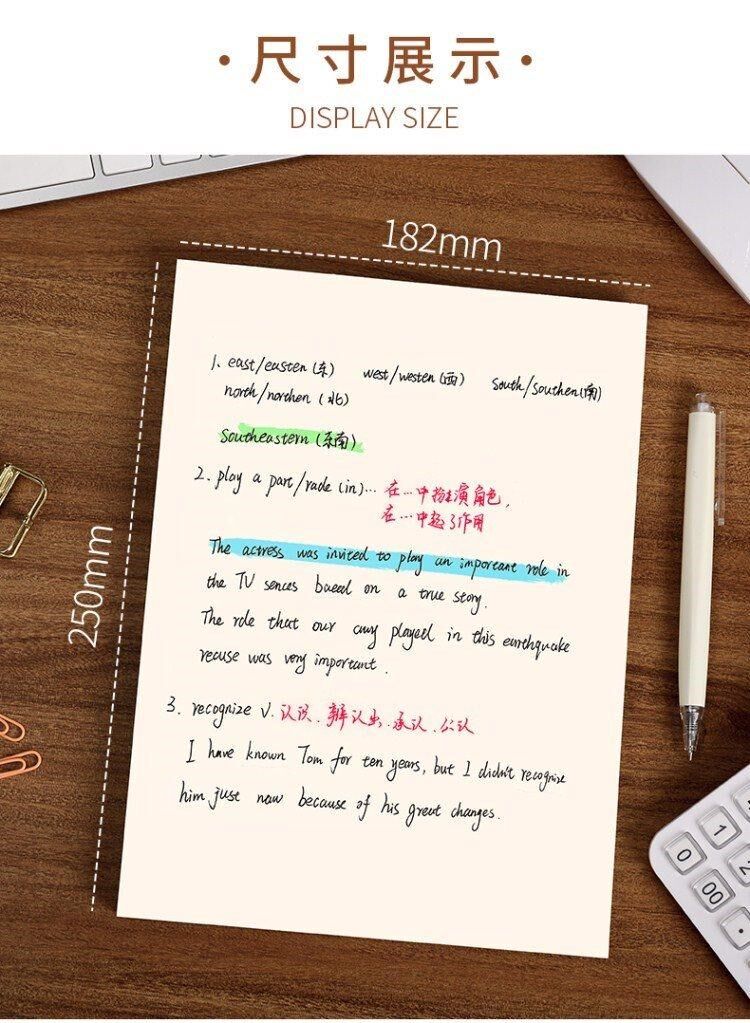 ·尺寸展示·
DISPLAY SIZE
182mm
250mm
1. east/easten (东) west/westen (西) South/Southen(南)
north/northen (北)
Southeastern (东南)
2. play a part/rade (in)... 在…中扮演角色,
在…中起了作用
The actress was invited to play an important role in
the TV sences baeed on a true story.
The role that our played in this earthquake
recuse was very important.
3. recognize v. 认识、辨认出、承认、公认
I have known Tom for ten years, but I didn't recognize
him just now because of his great changes.
0
1
2
00
·